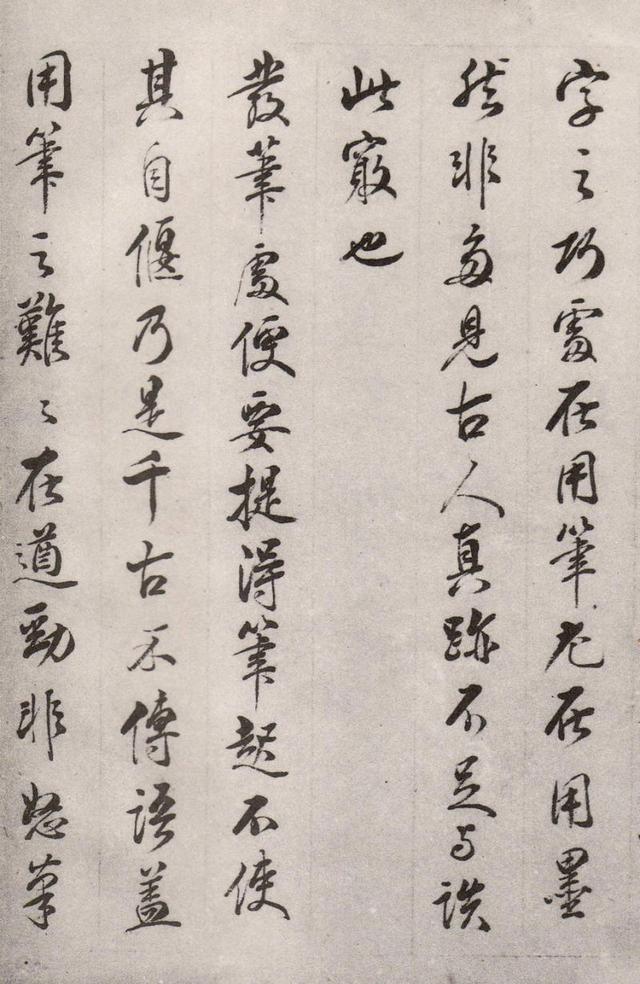 字之巧處在用筆尤在用墨
然非多見古人真跡不足与談
此竅也
發筆處便要提得筆起不使
其自偃乃是千古不傳語蓋
用筆之難〻在遒勁非怒筆